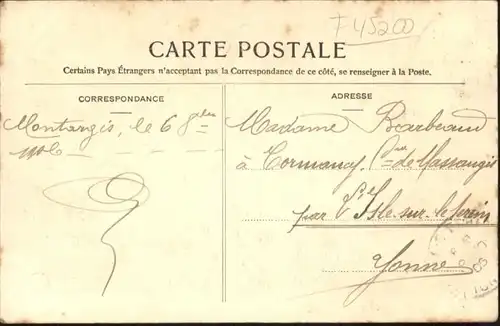 F 45200
CARTE POSTALE
Certains Pays Étrangers n'acceptant pas la Correspondance de ce côté, se renseigner à la Poste.
CORRESPONDANCE
Montargis, le 6
ADRESSE
Madame Barbeaud
à Cormancy, Cne de Massangis
par l'Isle-sur-le-Serein
Yonne